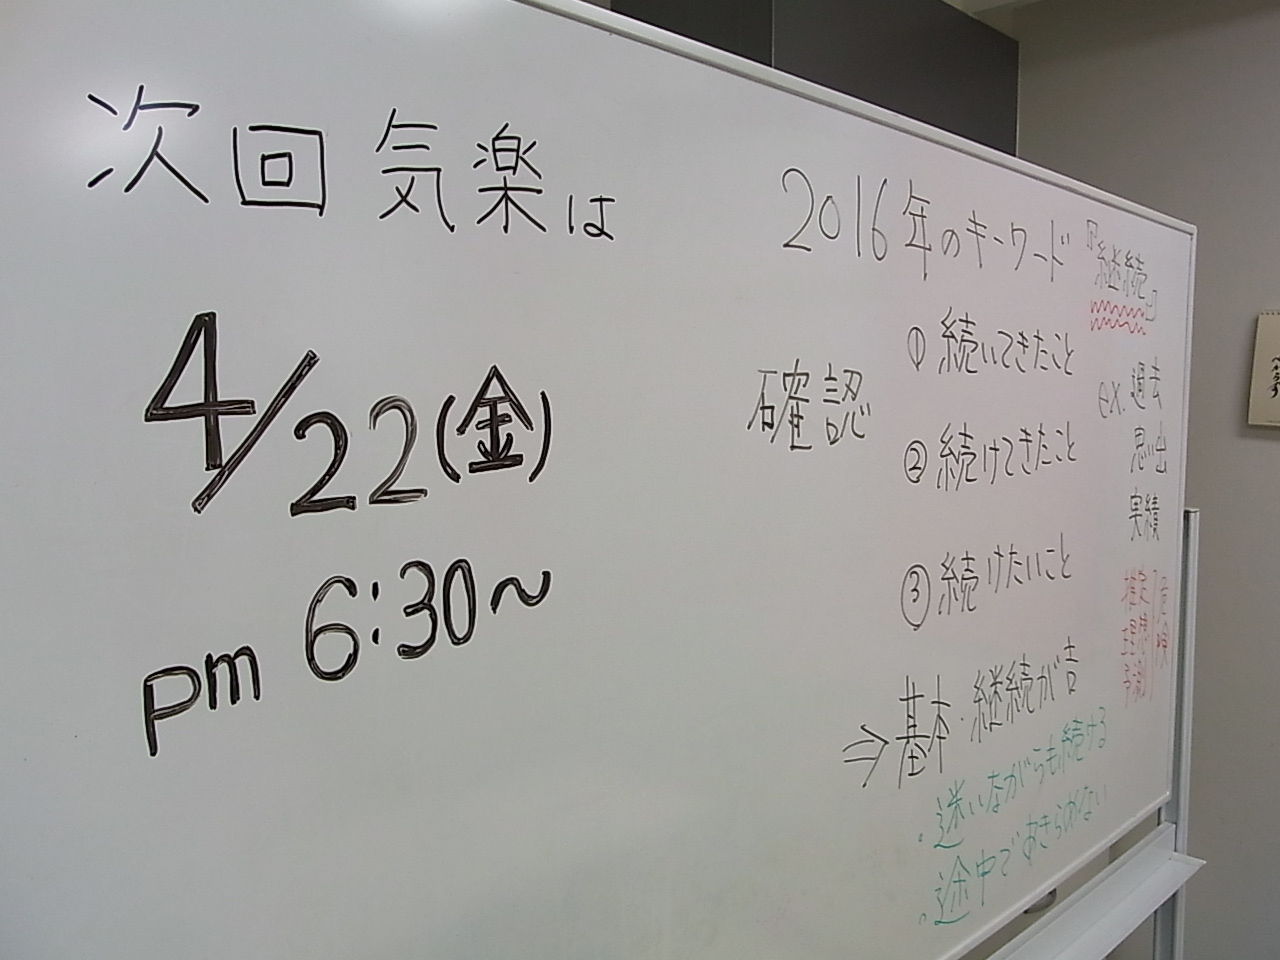 次回気楽は
4/22(金)
pm 6:30〜
2016年のキーワード『継続』
確認
①続いてきたこと
②続けてきたこと
③続けたいこと
ex. 過去
思い出
実績
推定
理想
予測
危険
⇒基本・継続が吉
・迷いながらも続ける
・途中であきらめない